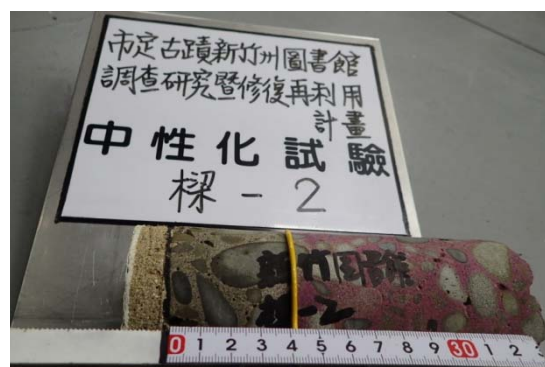 市定古蹟新竹州圖書館
調查研究暨修復再利用
計畫
中性化試驗
樑-2
新竹圖書館
樑-2
0 1 2 3 4 5 6 7 8 9 30 1 2